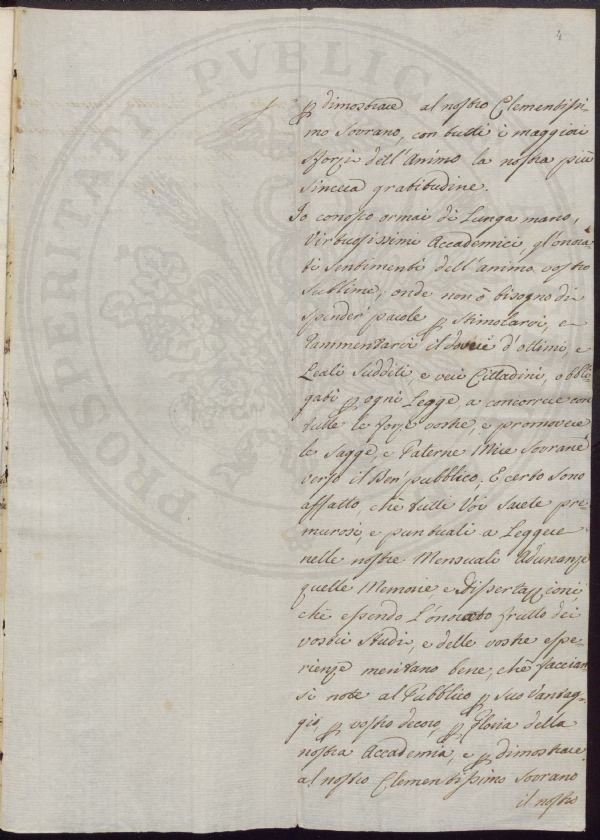 4
PROSPERITATI PVBLIC
ꝑ dimostrare al nostro Clementissi-
mo Sovrano, con tutti i maggiori
sforzi dell'Animo la nostra più
sincera gratitudine.
Io conosco ormai di Lunga mano,
Virtuosissimi Accademici gl'onora-
ti sentimenti dell'animo vostro
sublime, onde non è bisogno di
spender parole ꝑ stimolarvi, e
rammentarvi il dovere d'ottimi, e
Leali Sudditi, e veri Cittadini, obbli-
gati ꝑ ogni Legge a concorrere con
tutte le forze vostre, e promovere
le sagge, e Paterne Mire Sovrane
verso il Ben pubblico. E certo sono
affatto, chè tutti Voi sarete pre-
murosi, e puntuali a Leggere
nelle nostre Mensuali Adunanze
quelle Memorie, e Dissertazzioni,
chè essendo L'onorato frutto dei
vostri Studi, e delle vostre espe-
rienze meritano bene, chè faccian-
si note al Pubblico ꝑ suo Vantag-
gio, ꝑ vostro decoro, ꝑ Gloria della
nostra Accademia, e ꝑ dimostrare
al nostro Clementissimo Sovrano
il nostro